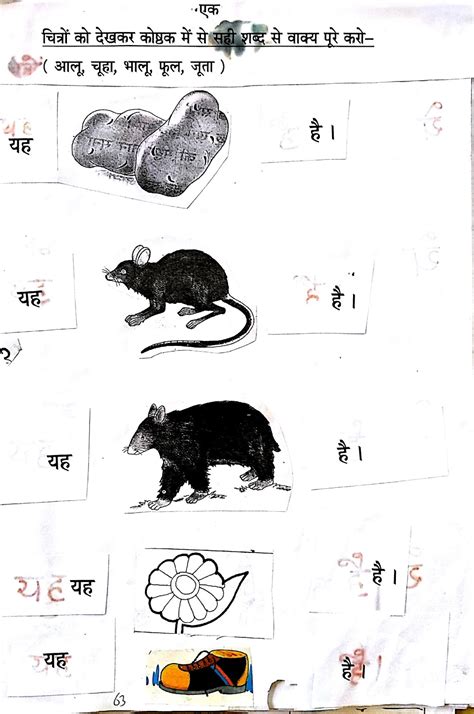 एक
चित्रों को देखकर कोष्ठक में से सही शब्द से वाक्य पूरे करो–
( आलू, चूहा, भालू, फूल, जूता )
यह है।
यह है।
यह है।
यह यह है।
यह है।
63